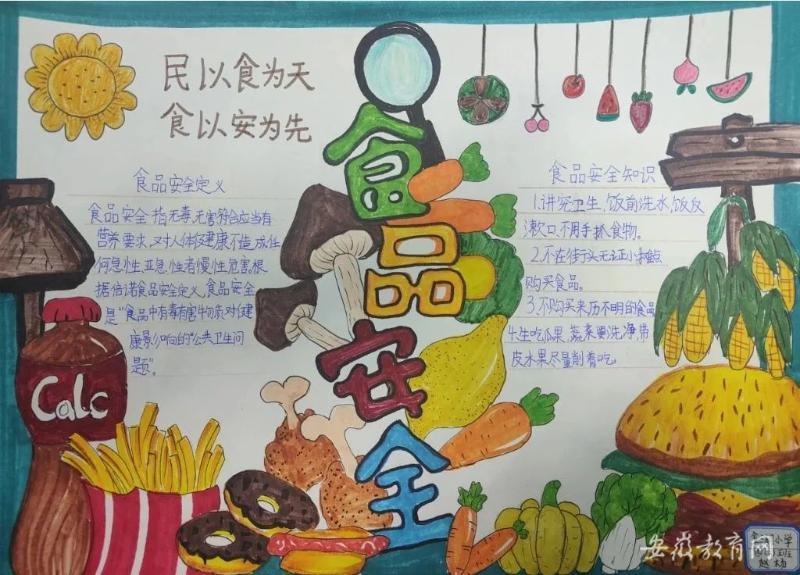 民以食为天
食以安为先
食品安全
食品安全定义
食品安全指无毒、无害符合应当有
营养要求，对人体健康不造成任
何急性、亚急性者慢性危害。根
据倍诺食品安全定义，食品安全
是“食品中有毒有害物质对健
康影响的公共卫生问
题”。
食品安全知识
1.讲究卫生，饭前洗水，饭后
漱口不用手抓食物。
2.不在街头无证小摊点
购买食品。
3.不购买来历不明的食品
4.生吃瓜果、蔬菜要洗净，带
皮水果尽量削着吃。
Calc
小学
班
安徽教育网